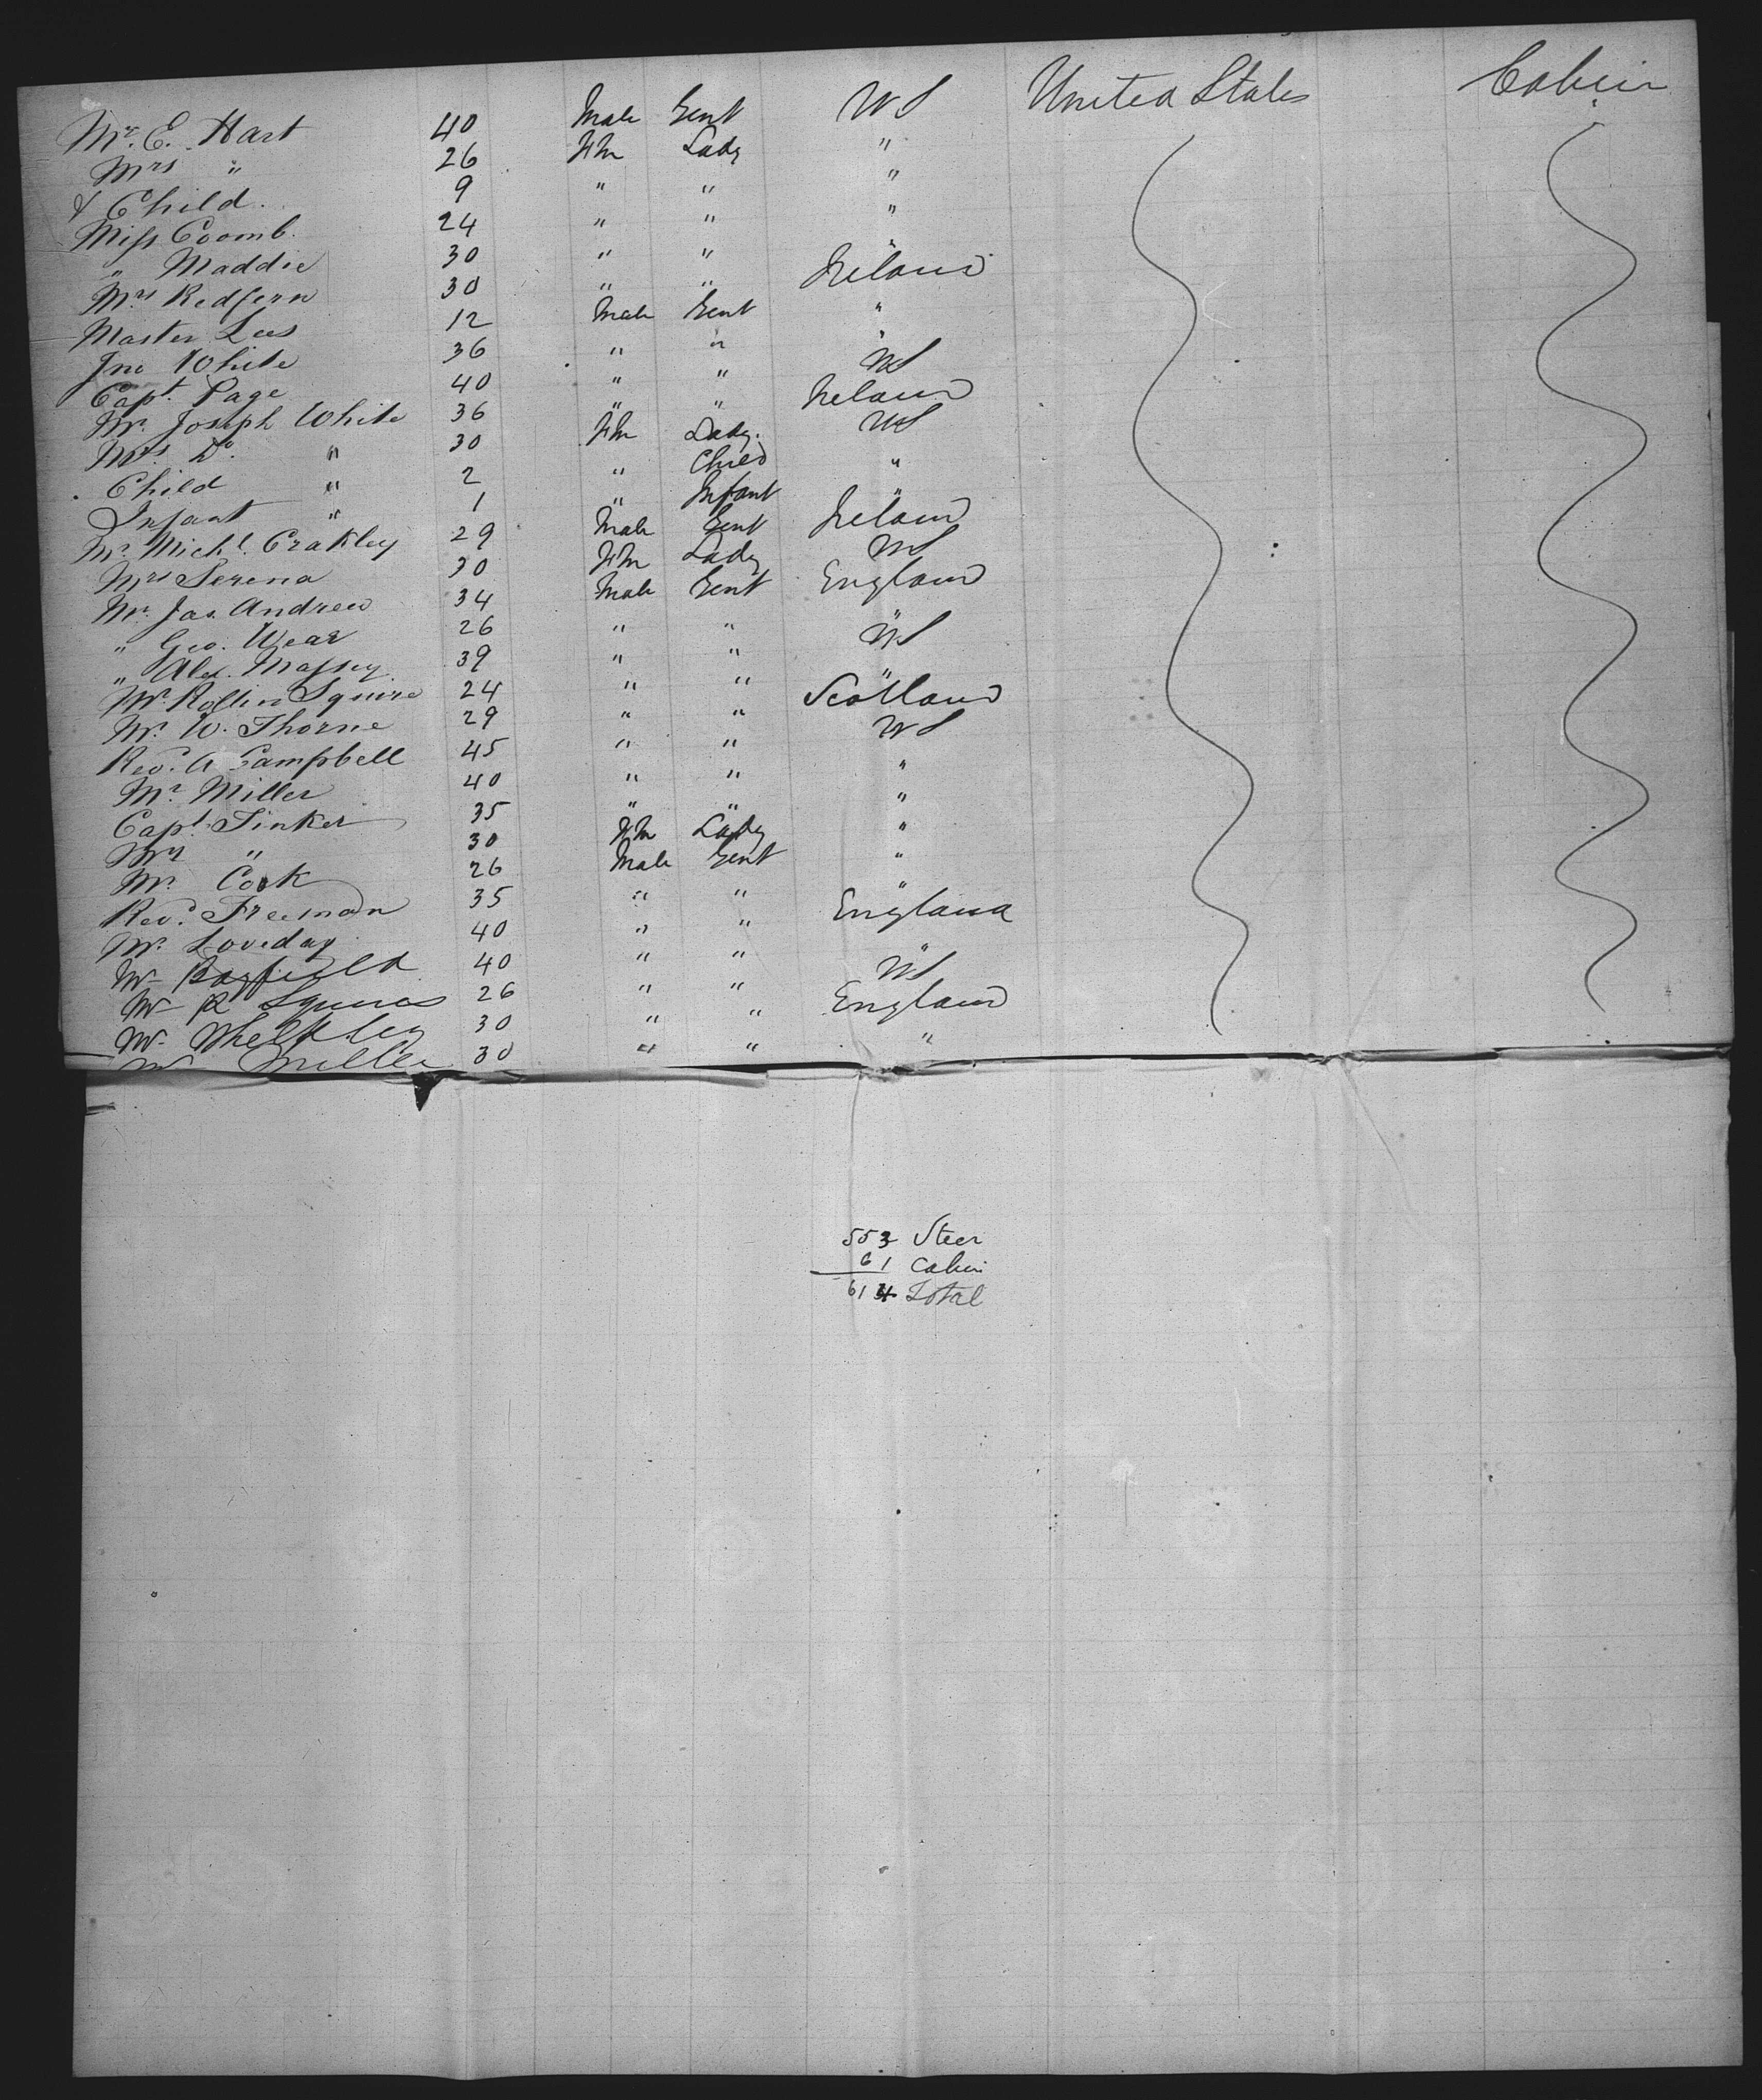 Mr. E. Hart 40 Male Gent US United States Cabin
Mrs " 26 Fm Lady "
& Child. 9 " " "
Miss Coomb. 24 " " "
" Maddie 30 " " "
Mrs Redfern 30 " " Ireland
Master Lees 12 Male Gent "
Jno White 36 " " "
Capt. Page 40 " " US
Mr. Joseph White 36 " " Ireland
Mrs. Do. " 30 Fm Lady. US
Child " 2 " Child "
Infant " 1 " Infant "
Mr. Michl. Crakley 29 Male Gent Ireland
Mrs Serena 30 Fm Lady US
Mr. Jas. Andrew 34 Male Gent England
" Geo. Wear 26 " " "
" Alex. Massey 39 " " US
Mr. Rollin Squire 24 " " "
Mr. W. Thorne 29 " " Scotland
Rev. A Campbell 45 " " US
Mr. Miller 40 " " "
Capt. Tinker 35 " " "
Mrs " 30 Fm Lady "
Mr. Cook 26 Male Gent "
Revd. Freeman 35 " " "
Mr. Loveday 40 " " England
Mr 40 " " "
Mr R Squires 26 " " US
Mr. 30 " " England
Mr Miller 30 " " "
553 Steer
61 Cabin
614 Total